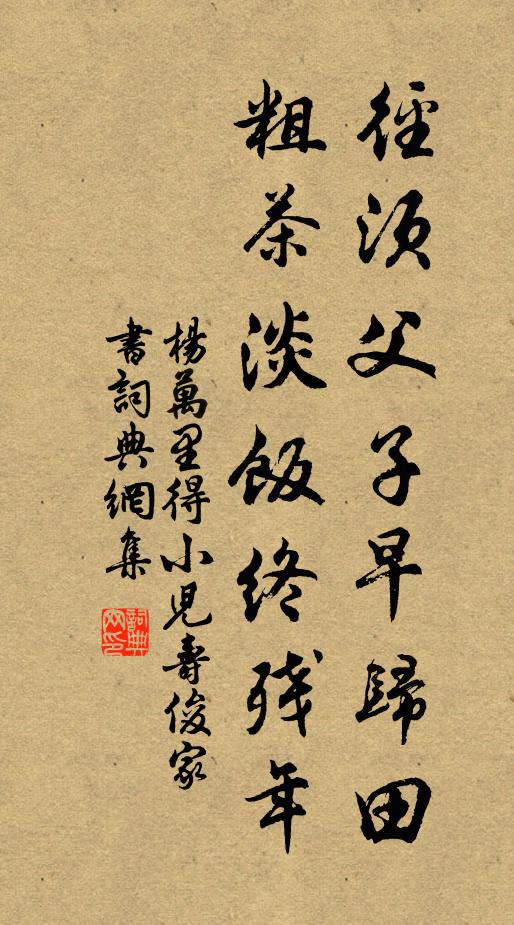 徑須父子早歸田
粗茶淡飯終殘年
楊萬里得小兒壽俊家
書詞典網集
詞典
网印